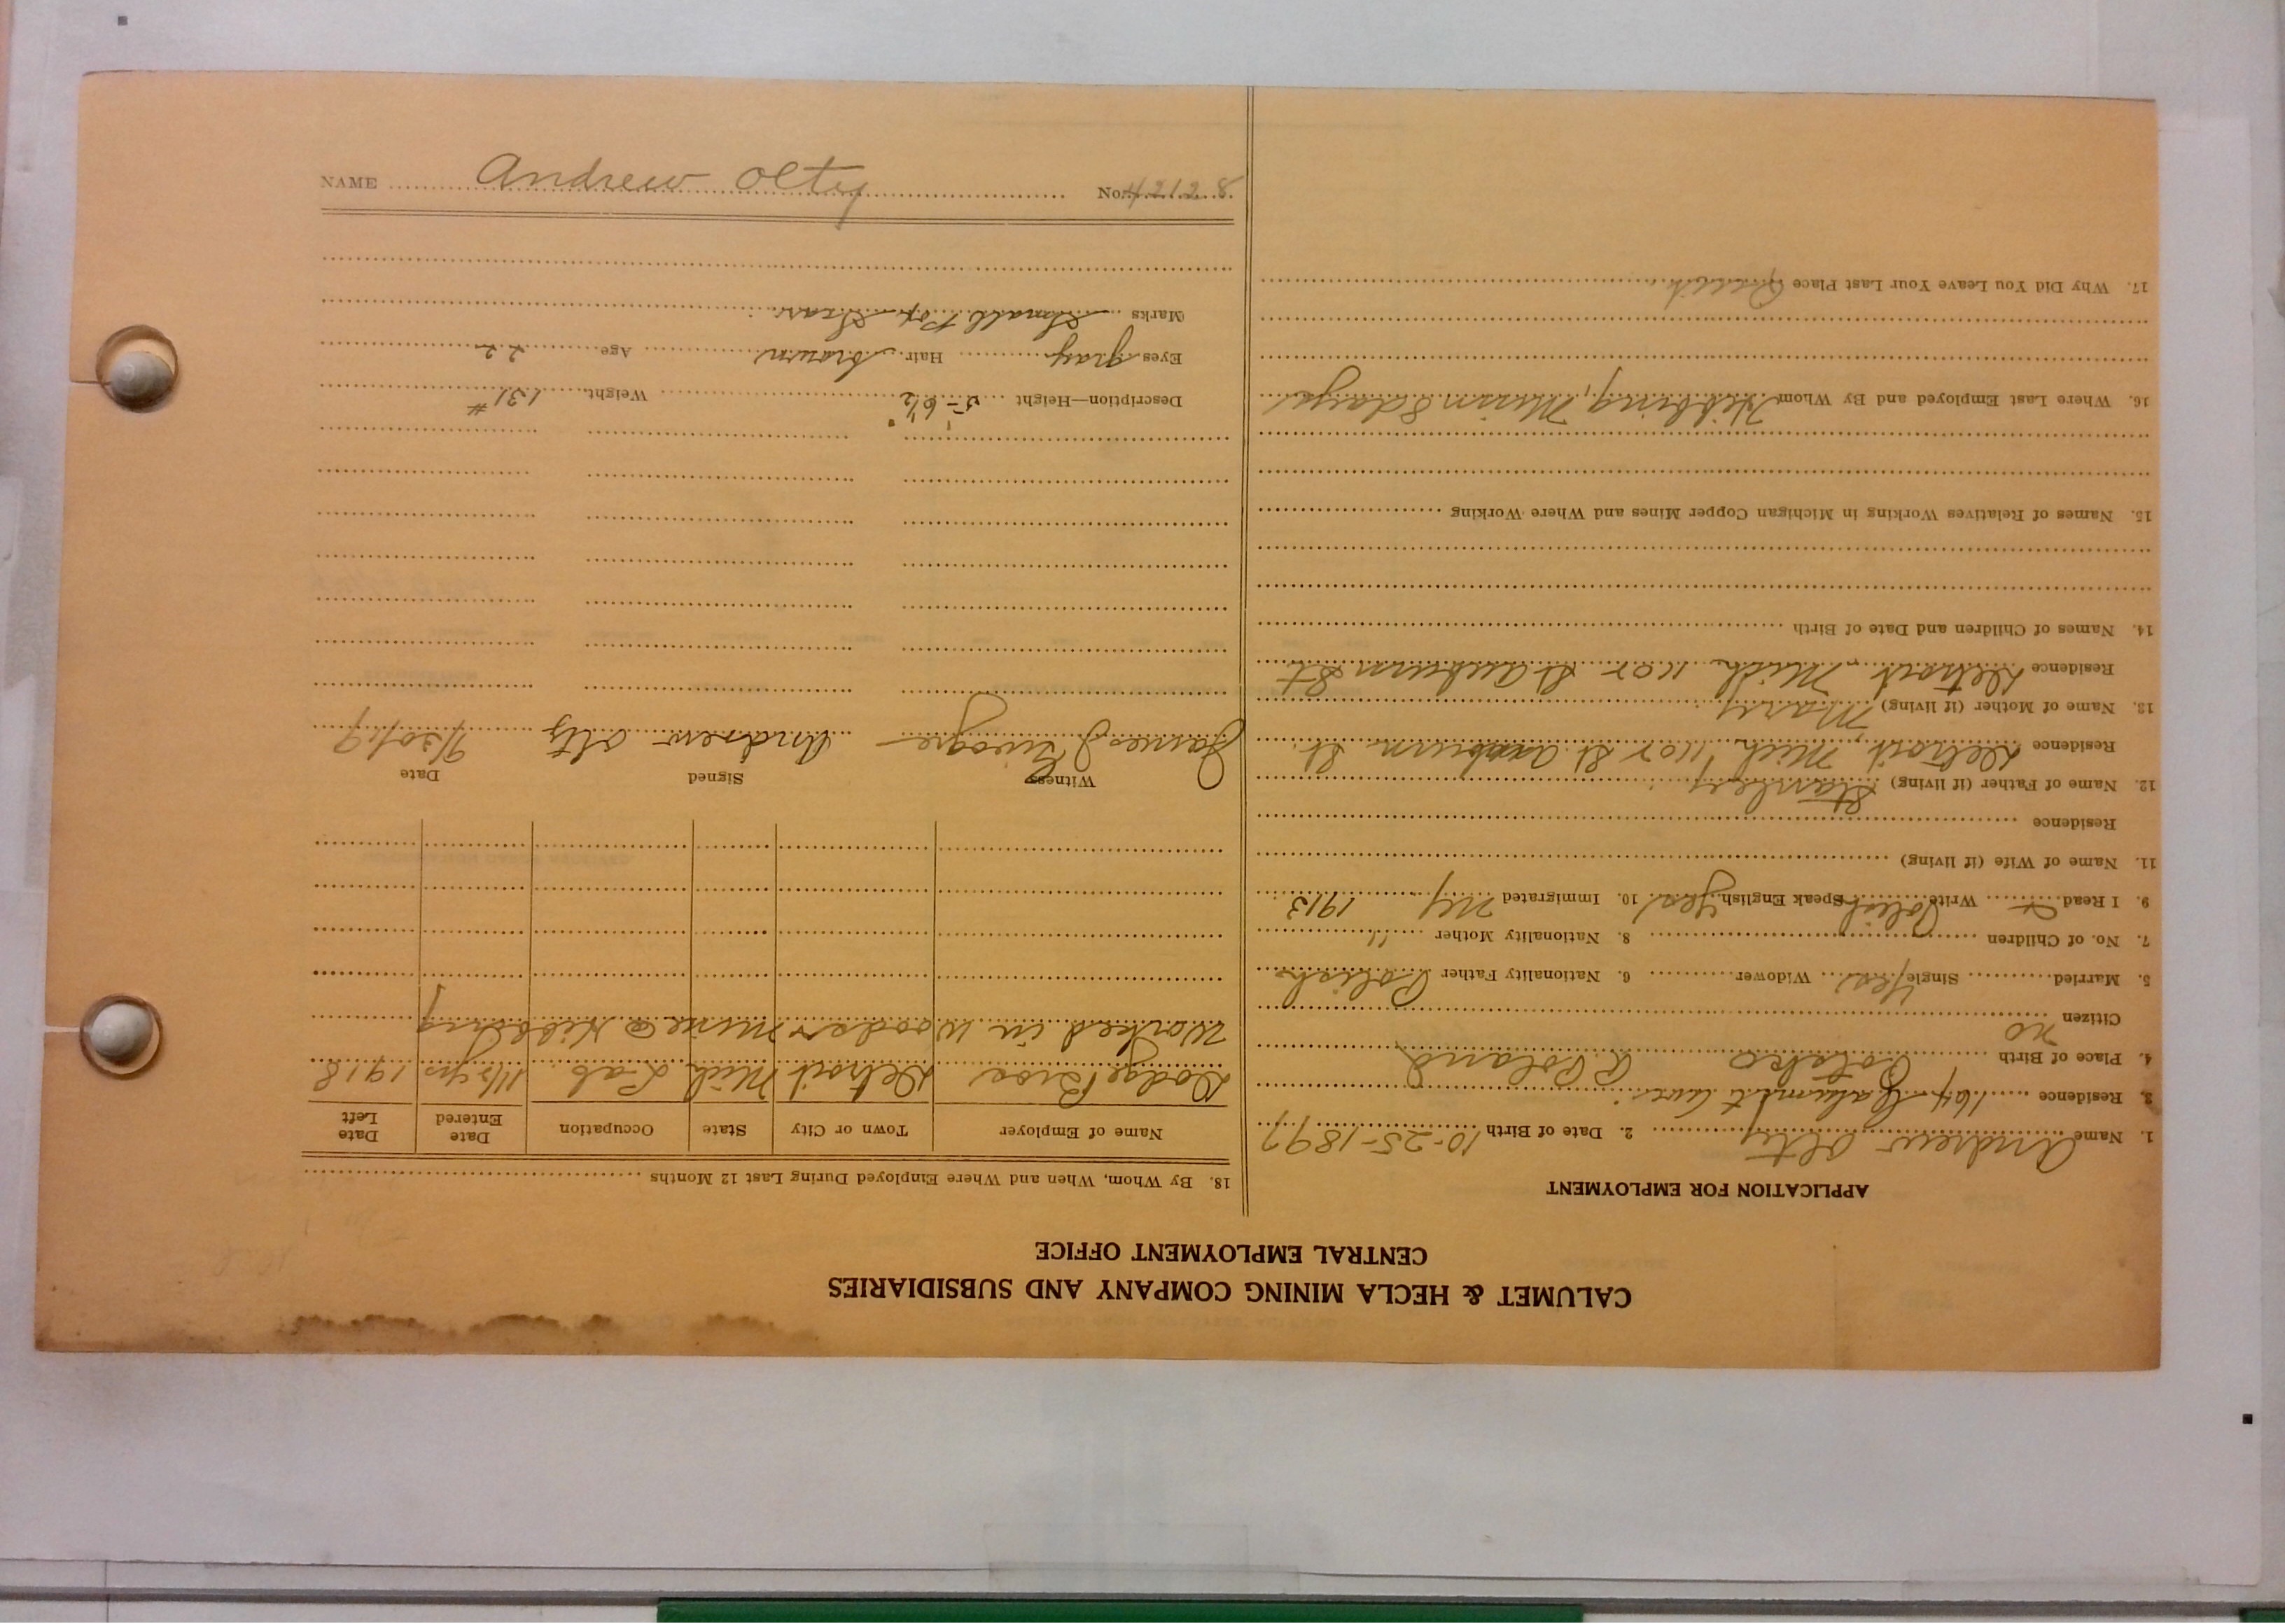 CALUMET & HECLA MINING COMPANY AND SUBSIDIARIES
CENTRAL EMPLOYMENT OFFICE
APPLICATION FOR EMPLOYMENT
1. Name Andrew Olty 2. Date of Birth 10-25-1897
3. Residence 164 Calumet Ave.
4. Place of Birth Poland
Citizen no
5. Married Single Yes Widower 6. Nationality Father Polish
7. No. of Children 8. Nationality Mother "
9. I Read Write Polish Speak English Yes 10. Immigrated NY 1913
11. Name of Wife (if living)
Residence
12. Name of Father (if living) Stanley
Residence Detroit, Mich. St Auburn St.
13. Name of Mother (if living) Mary
Residence Detroit, Mich. St Auburn St
14. Names of Children and Date of Birth
15. Names of Relatives Working in Michigan Copper Mines and Where Working
16. Where Last Employed and By Whom Hibbing, Minn 8 days
17. Why Did You Leave Your Last Place
18. By Whom, When and Where Employed During Last 12 Months
Name of Employer Town or City State Occupation Date Entered Date Left
Dodge Bros Detroit Mich Lab. 1 1/2 yrs 1918
Worked in Wooder mine @ Hibbing
Witness Signed Date
James J Andrew Olty 9/30/19
Description—Height 5'-6 1/2" Weight 131 #
Eyes gray Hair brown Age 22
Marks Small Pox Scars
NAME Andrew Olty No. 42128